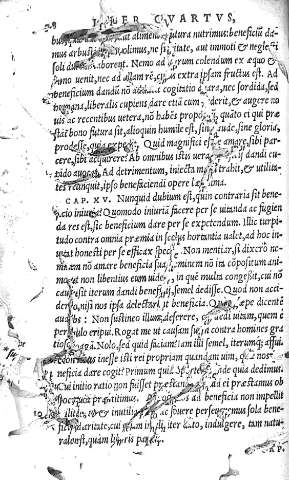 LIBER QVARTVS,
alimen futura nutrimus: beneficiũ da=
mus arbusta colimus, ne si tate, aut immoti & negle
soli laborent. Nemo ad agrum colendum ex æquo &
bono uenit, nec ad aliam rẽ, cuius extra ipsam fructus est. Ad
beneficium dandũ nõ adducit cogitatio auara, nec sordida, sed
humana, liberalis cupiens dare etiã cum dederit, & augere no
uis ac recentibus uetera, nõ habẽs propositũ, quãto ei qui præ
stat bono futura sit, alioquin humile est, sine laude, sine gloria,
prodesse, quia expedit. Quid magnifici est se amare, sibi par=
cere, sibi acquirere? Ab omnibus istis uera dandi cu=
pido auocat. Ad detrimentum, iniecta manu trahit, & utilita=
tes relinquit, ipso beneficiendi opere lætissima.
CAP. XV. Nunquid dubium est, quin contraria sit bene
ficio iniuria? Quomodo iniuriã facere per se uitanda ac fugien
da res est, sic beneficium dare per se expetendum. Illic turpi
tudo contra omnia præmia in scelus hortantia ualet, ad hoc in=
uitat honesti per se efficax species. Non mentiar, si dixero ne=
minem nõ amare beneficia sua, neminem nõ ita cõpositum ani=
mo, ut non libentius eum uideat in quẽ multa congessit, cui nõ
causa sit iterum dandi beneficij, semel dedisse. Quod non acci=
deret, nisi nos ipsa delectarent beneficia. Quam sæpe dicentẽ
audias: Non sustineo illum deserere, cui dedi uitam, quem e
periculo eripui. Rogat me ut causam suam contra homines gra
tiosos agã. Nolo, sed quid faciam? iam illi semel, iterumq; affui.
inesse isti rei propriam quandam uim, quæ nos
beneficia dare cogit? Primum quia oportet, deinde quia dedimus.
Cui initio ratio non fuisset præstandi, ad ei præstamus ob
hoc, quia præstitimus. ad beneficia non impellit
utilitas, & inutilia ac fouere perseueremus sola bene=
ficij charitate, cui etiam infeliciter dato, indulgere, tam natu=
rale est, quàm liberis prauis.